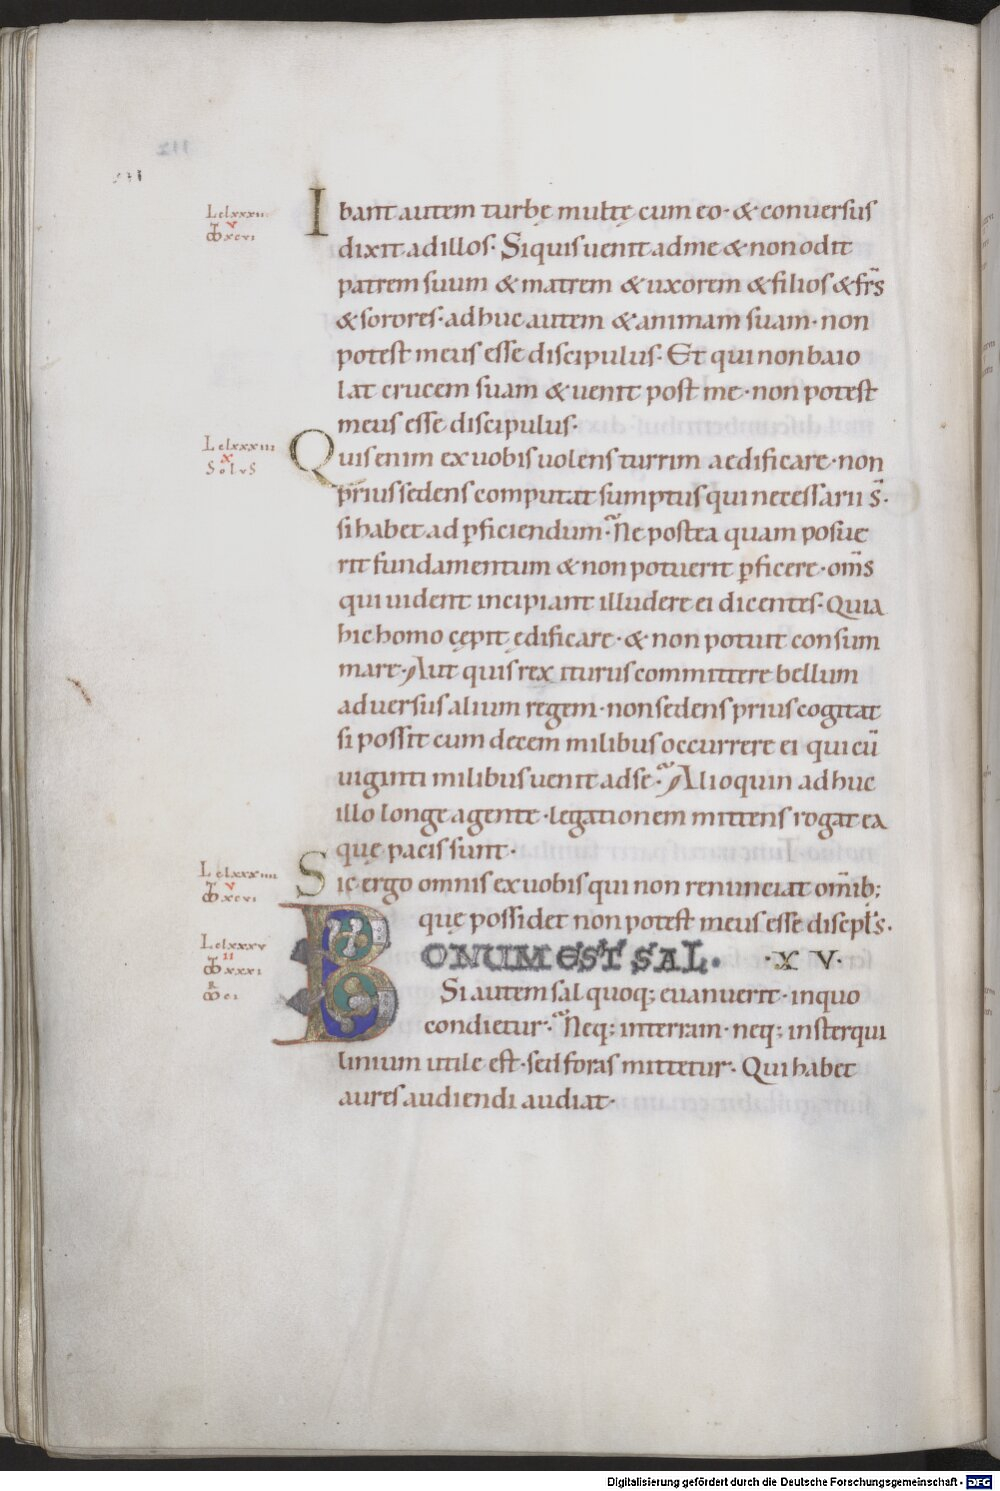 Ibant autem turbę multę cum eo· & conuersus
dixit ad illos· Siquis uenit ad me & non odit
patrem suum & matrem & uxorem & filios & frs̄
& sorores· adhuc autem & animam suam· non
potest meus esse discipulus· Et qui non baio
lat crucem suam & uenit post me· non potest
meus esse discipulus·
Quis enim ex uobis uolens turrim aedificare· non
prius sedens computat sumptus qui necessarii s̄·
si habet ad ꝑficiendum· Ne postea quam posue
rit fundamentum & non potuerit ꝑficere· om̄s
qui uident incipiant illudere ei dicentes· Quia
hic homo cępit ędificare· & non potuit consum
mare· Aut quis rex iturus committere bellum
aduersus alium regem· non sedens prius cogitat
si possit cum decem milibus occurrere ei qui cū
uiginti milibus uenit ad se· Alioquin adhuc
illo longe agente· legationem mittens rogat ea
quę pacis sunt·
Sic ergo omnis ex uobis qui non renunciat om̄ib;
quę possidet non potest meus esse discipl̄s·
BONUM EST SAL· ·XV·
Si autem sal quoq; euanuerit· in quo
condietur· Neq; in terram· neq; in sterqui
linium utile est· sed foras mittetur· Qui habet
aures audiendi audiat·
Lclxxxiii
Solus
x
Lclxxxiiii
v
xcvi
Lclxxxv
ii
xxxi
Digitalisierung gefördert durch die Deutsche Forschungsgemeinschaft - DFG